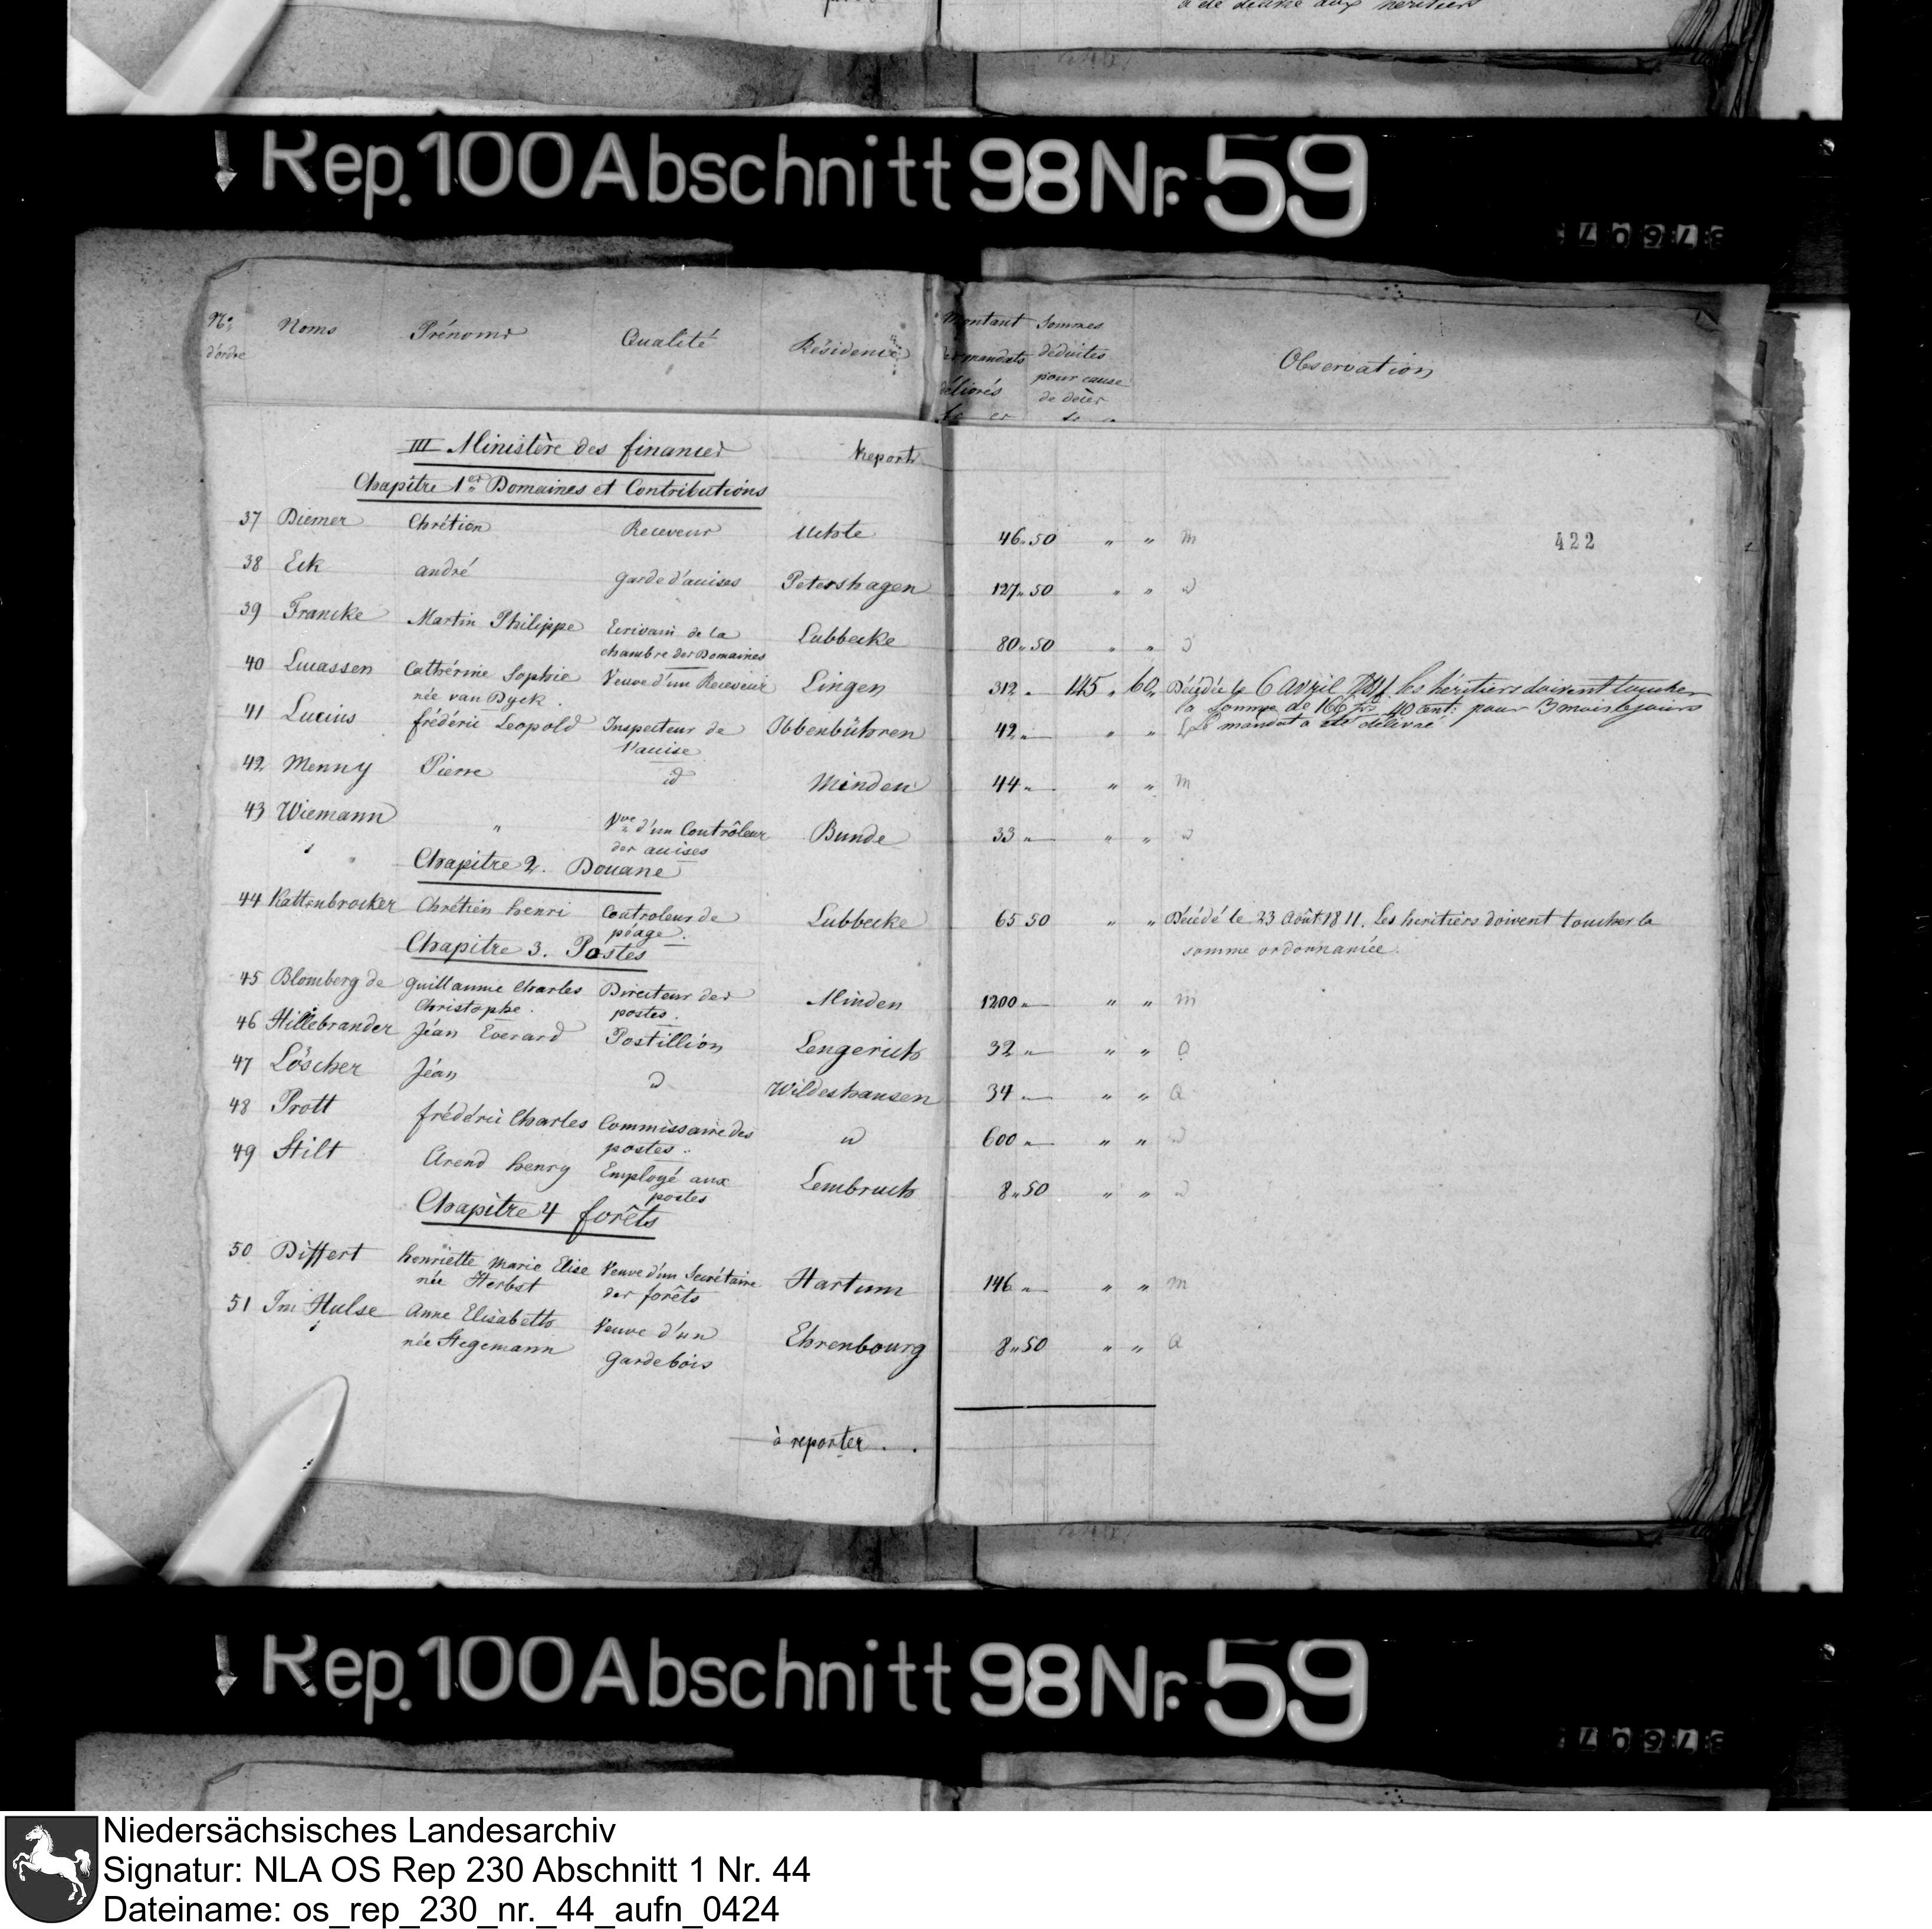 a été délivré aux héritiers
Rep. 100 Abschnitt 98 Nr. 59
N.º d'ordre Noms Prénoms Qualité Résidence Montant des mandats délivrés Sommes déduites pour cause de décès Observation
fr cs fr
III Ministère des finances Report
Chapitre 1er Domaines et Contributions
422
37 Diemer Chrétien Receveur Uchte 46 " 50 " " m
38 Eck andré garde d'accises Petershagen 127 " 50 " " id
39 Francke Martin Philippe Ecrivain de la Lubbecke 80 " 50 " "
chambre des Domaines
40 Lucassen Cathérine Sophie Veuve d'un Receveur Lingen 312 " 145 " 60 " Décédée le 6 avril 1811 les héritiers doivent toucher
née van Dyck la somme de 166 frs 40 cent: pour 3 mois 6 jours
41 Lucius frédéric Leopold Inspecteur de Ibbenbühren 42 " — " " Le mandat a été délivré
l'accise
42 Menny Pierre id Minden 44 " — " " m
43 Wiemann " Vve d'un Contrôleur Bunde 33 " — " " id
des accises
Chapitre 2. Douane
44 Kattenbrocker Chrétien henri Controleur de Lubbecke 65 50 " " Décédé le 23 Août 1811. Les heritiers doivent toucher la
péage. somme ordonnancée.
Chapitre 3. Postes
45 Blomberg de guillaume Charles Directeur des Minden 1200 " — " " m
Christophe. postes.
46 Hillebrander Jéan Everard Postillion Lengerich 32 " — " " O
47 Löscher Jéan id Wildeshausen 34 " — " " Q
48 Prott frédéric Charles Commissaire des id 600 " — " " id
postes.
49 Stilt Arend henry Employé aux Lembruch 8 " 50 " " id
postes
Chapitre 4 forêts
50 Differt henriette Marie Elise Veuve d'un Secrétaire Hartum 146 " — " " m
née Herbst des forêts
51 Im Hulse Anne Elisabeth Veuve d'un Ehrenbourg 8 " 50 " " Q
née Stegemann gardebois
à reporter . .
Rep. 100 Abschnitt 98 Nr. 59
Niedersächsisches Landesarchiv
Signatur: NLA OS Rep 230 Abschnitt 1 Nr. 44
Dateiname: os_rep_230_nr._44_aufn_0424